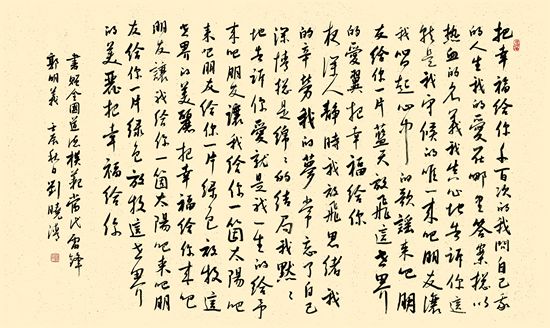 把幸福给你千百次的我問自己我
的人生我的爱在哪里答案總以
热血的名義我真心地告诉你這
就是我守候的唯一来吧朋友讓
我唱起心中的歌謡来吧朋
友给你一片蓝天放飛這世界
的爱翼把幸福给你
夜深人静時我放飛思绪我
的辛劳我的夢常忘了自己
深情總是綿々的结局我默々
地告诉你爱就是我一生的给予
来吧朋友讓我给你一箇太陽吧
来吧朋友给你一片绿色放牧這
世界的美麗把幸福给你来吧
朋友讓我给你一箇太陽吧来吧朋
友给你一片绿色放牧這世界
的美麗把幸福给你
書贈全國道德模範當代雷锋
郭明義 壬辰秋日劉曉